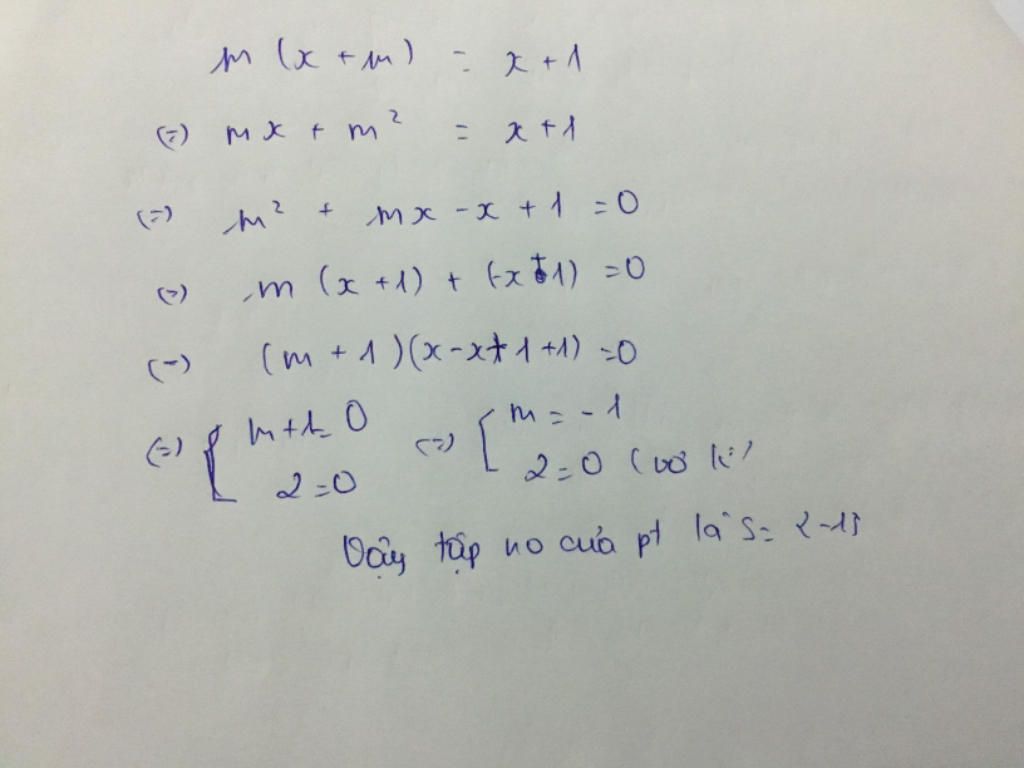 m (x + m) = x + 1
(=) mx + m² = x + 1
(=) m² + mx - x + 1 = 0
(=) m (x + 1) + (-x + 1) = 0
(=) (m + 1)(x - x + 1 + 1) = 0
(=) [ m + 1 = 0 (=) [ m = -1
2 = 0 2 = 0 (vô lí)
Vậy tập no của pt là S = {-1}